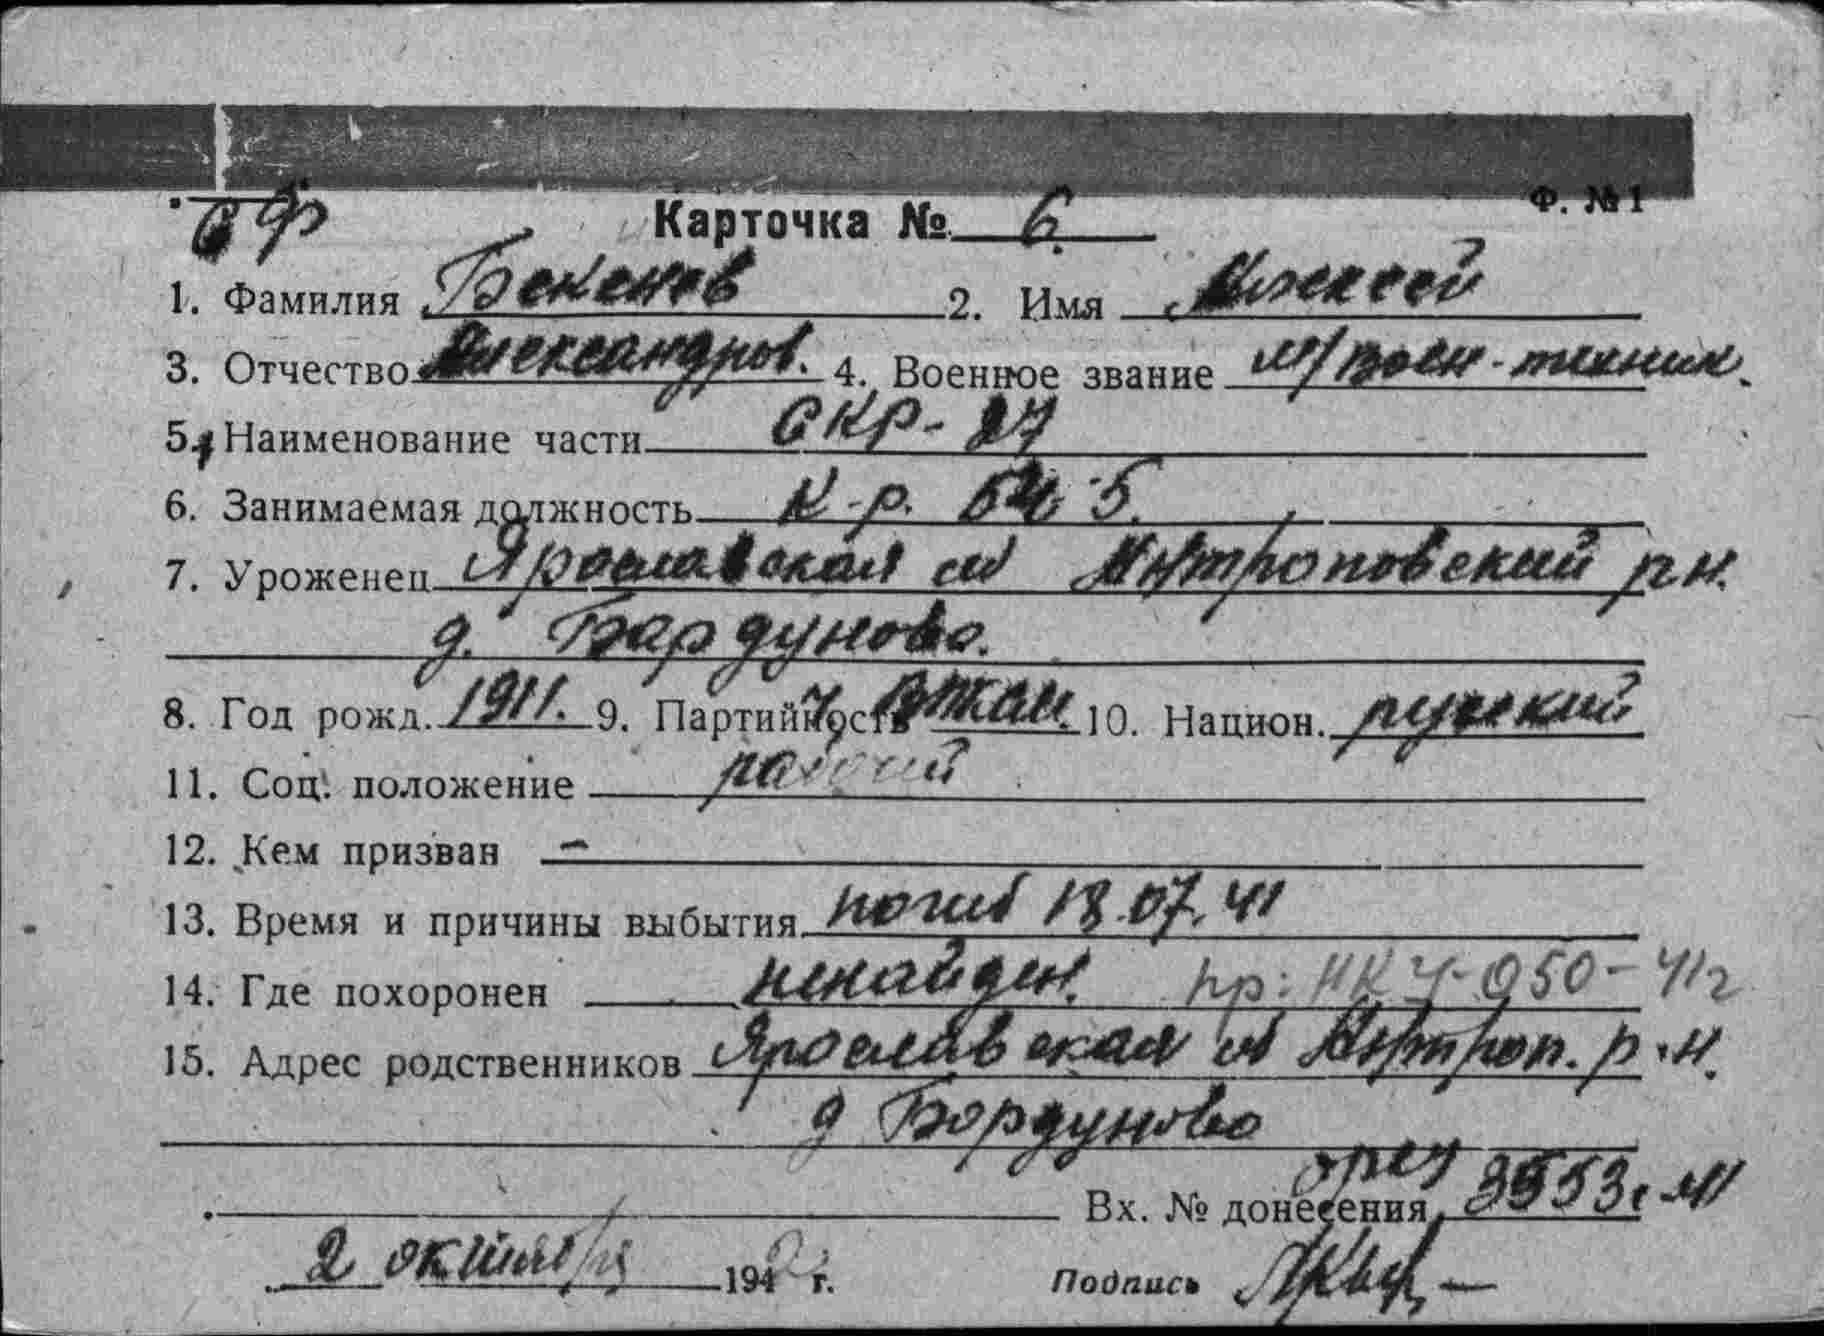 Ф. №1
СФ
Карточка № 6.
1. Фамилия Бекенев 2. Имя Алексей
3. Отчество Александров. 4. Военное звание м/воен-техник.
5. Наименование части СКР-27
6. Занимаемая должность К-р. БЧ-5.
7. Уроженец Ярославская об Антроповский р-н.
д. Бардуново.
8. Год рожд. 1911. 9. Партийность 10. Национ. русский
11. Соц. положение рабочий
12. Кем призван -
13. Время и причины выбытия погиб 18.07.41
14. Где похоронен ненайден. пр: НКУ-050-41г
15. Адрес родственников Ярославская об Антроп. р-н.
д Бордуново
Вх. № донесения 3553с-41
2 октября 1942 г. Подпись